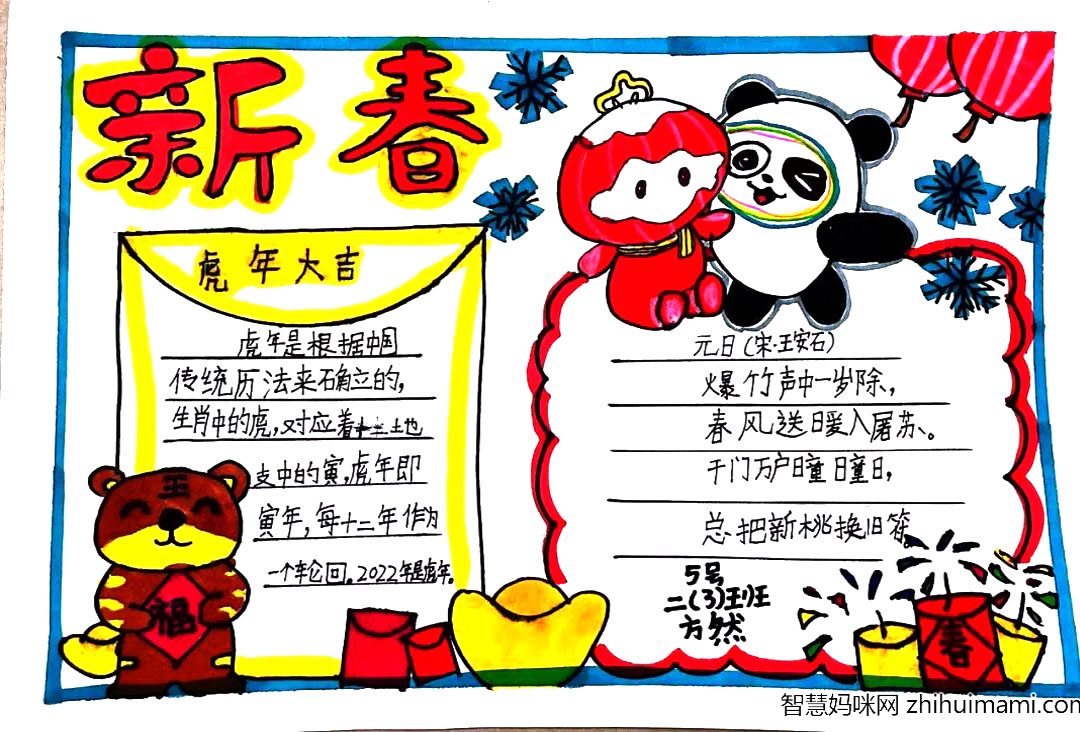 新春
虎年大吉
虎年是根据中国
传统历法来确立的,
生肖中的虎,对应着十二土地
支中的寅,虎年即
寅年,每十二年作为
一个轮回。2022年是虎年。
王
福
元日(宋·王安石)
爆竹声中一岁除,
春风送暖入屠苏。
千门万户曈曈日,
总把新桃换旧符。
5号
二(3)班
方然
春
智慧妈咪网 zhihuimami.com